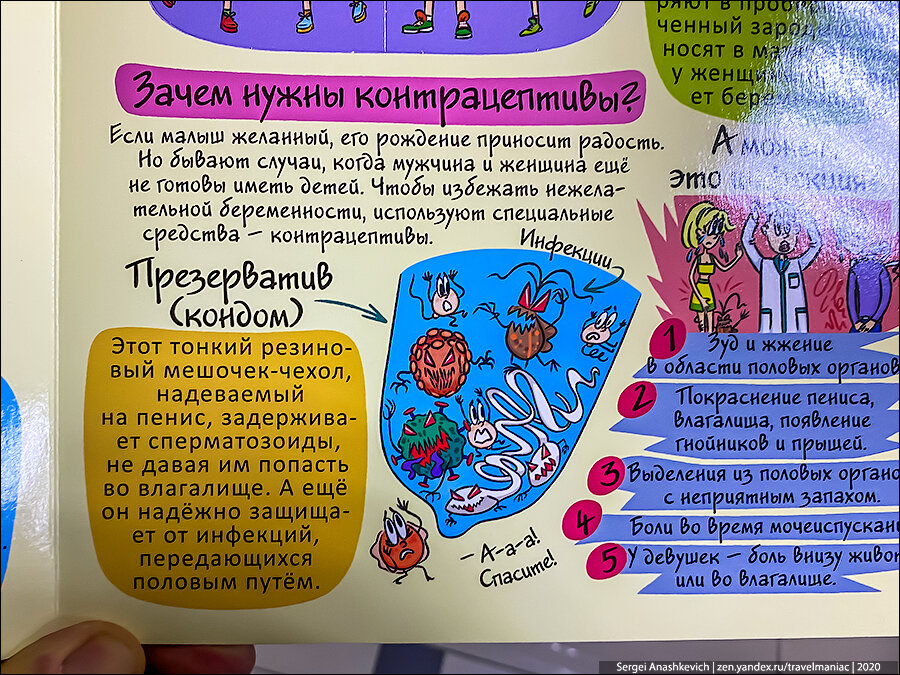 Зачем нужны контрацептивы?
Если малыш желанный, его рождение приносит радость.
Но бывают случаи, когда мужчина и женщина ещё
не готовы иметь детей. Чтобы избежать нежела-
тельной беременности, используют специальные
средства – контрацептивы.
Презерватив
(кондом)
Этот тонкий резино-
вый мешочек-чехол,
надеваемый
на пенис, задержива-
ет сперматозоиды,
не давая им попасть
во влагалище. А ещё
он надёжно защища-
ет от инфекций,
передающихся
половым путём.
Инфекции
– А-а-а!
Спасите!
ряют в
ченный
носят в
у
ет
А
это
1 Зуд и жжение
в области половых органов
2 Покраснение пениса,
влагалища, появление
гнойников и прыщей.
3 Выделения из половых органо
с неприятным запахом.
4 Боли во время мочеиспускани
5 У девушек – боль внизу живот
или во влагалище.
Sergei Anashkevich | zen.yandex.ru/travelmaniac | 2020